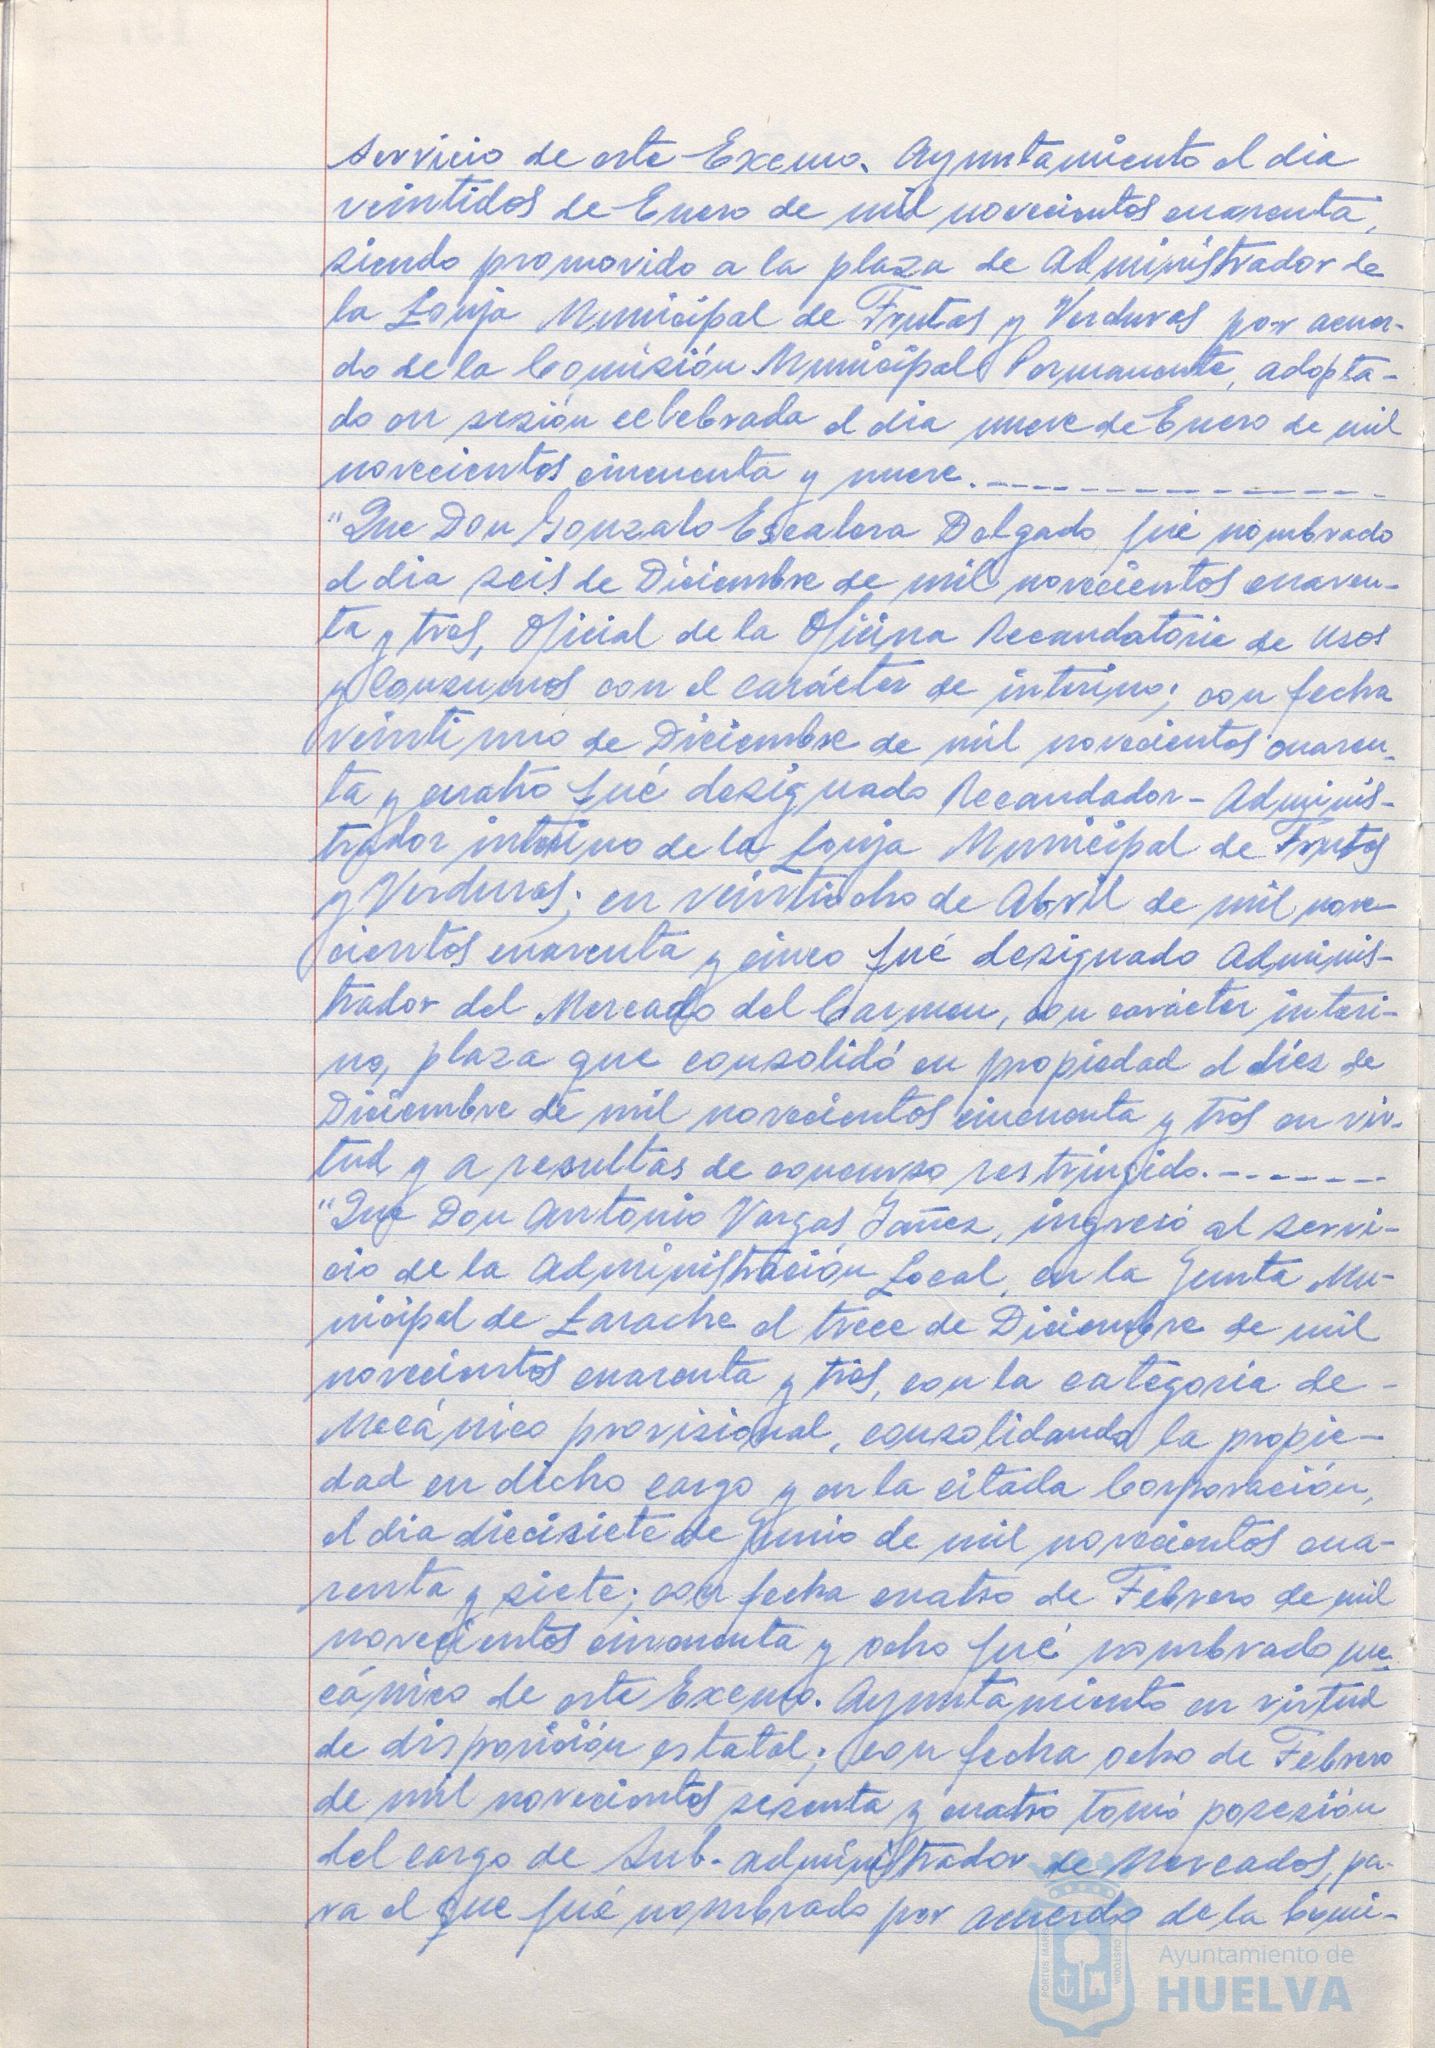 servicio de este Excmo. Ayuntamiento el dia
veintidos de Enero de mil novecientos cuarenta,
siendo promovido a la plaza de Administrador de
la Lonja Municipal de Frutas y Verduras por acuer-
do de la Comisión Municipal Permanente, adopta-
do en sesión celebrada el dia nueve de Enero de mil
novecientos cincuenta y nueve.
"Que Don Gonzalo Escalera Delgado, fué nombrado
el dia seis de Diciembre de mil novecientos cuaren-
ta y tres, Oficial de la Oficina Recaudatoria de Usos
y Consumos con el carácter de interino; con fecha
veintiuno de Diciembre de mil novecientos cuaren-
ta y cuatro fué designado Recaudador-Adminis-
trador interino de la Lonja Municipal de Frutas
y Verduras; en veintiocho de Abril de mil nove-
cientos cuarenta y cinco fué designado Adminis-
trador del Mercado del Carmen, con carácter interi-
no, plaza que consolidó en propiedad el diez de
Diciembre de mil novecientos cincuenta y tres en vir-
tud y a resultas de concurso restringido.
"Que Don Antonio Vargas Yañez, ingresó al servi-
cio de la Administración Local, en la Junta Mu-
nicipal de Larache el trece de Diciembre de mil
novecientos cuarenta y tres, con la categoria de-
Mecánico provisional, consolidando la propie-
dad en dicho cargo y en la citada Corporación,
el dia diecisiete de Junio de mil novecientos cua-
renta y siete; con fecha cuatro de Febrero de mil
novecientos cincuenta y ocho fué nombrado me-
cánico de este Excmo. Ayuntamiento en virtud
de disposición estatal; con fecha ocho de Febrero
de mil novecientos sesenta y cuatro tomó posesión
del cargo de Sub-administrador de Mercados, pa-
ra el que fué nombrado por acuerdo de la Comi-
Ayuntamiento de
HUELVA